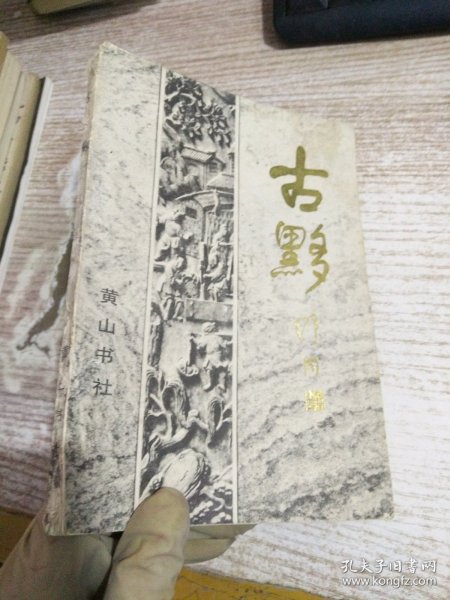 古黟
黄山书社
孔夫子旧书网
www.kongfz.com